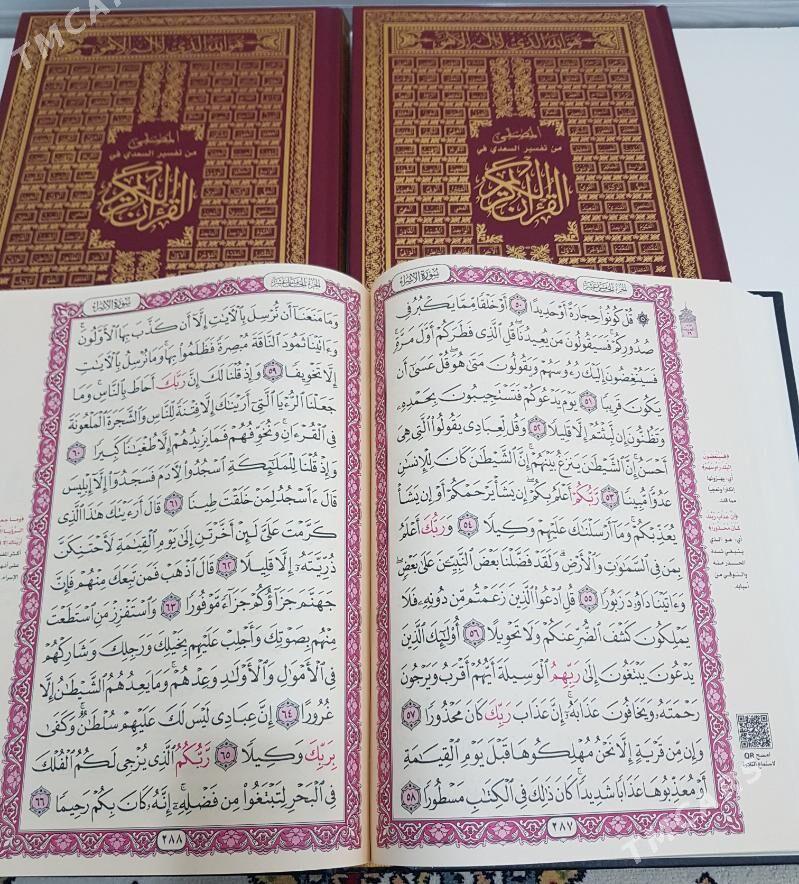 TMCARS
هو الله الذي لا إله إلا هو
المصطفى
من تفسير السعدي في
القرآن الكريم
هو الله الذي لا إله إلا هو
المصطفى
من تفسير السعدي في
القرآن الكريم
سُورَةُ الإِسْرَاء
الجزء الخامس عشر
۞ قُلْ كُونُوا۟ حِجَارَةً أَوْ حَدِيدًا ٥٠ أَوْ خَلْقًا مِّمَّا يَكْبُرُ فِى
صُدُورِكُمْ فَسَيَقُولُونَ مَن يُعِيدُنَا قُلِ ٱلَّذِى فَطَرَكُمْ أَوَّلَ مَرَّةٍ
فَسَيُنْغِضُونَ إِلَيْكَ رُءُوسَهُمْ وَيَقُولُونَ مَتَىٰ هُوَ قُلْ عَسَىٰٓ أَن
يَكُونَ قَرِيبًا ٥١ يَوْمَ يَدْعُوكُمْ فَتَسْتَجِيبُونَ بِحَمْدِهِۦ
وَتَظُنُّونَ إِن لَّبِثْتُمْ إِلَّا قَلِيلًا ٥٢ وَقُل لِّعِبَادِى يَقُولُوا۟ ٱلَّتِى هِىَ
أَحْسَنُ إِنَّ ٱلشَّيْطَٰنَ يَنزَغُ بَيْنَهُمْ إِنَّ ٱلشَّيْطَٰنَ كَانَ لِلْإِنسَٰنِ
عَدُوًّا مُّبِينًا ٥٣ رَّبُّكُمْ أَعْلَمُ بِكُمْ إِن يَشَأْ يَرْحَمْكُمْ أَوْ إِن يَشَأْ
يُعَذِّبْكُمْ وَمَآ أَرْسَلْنَٰكَ عَلَيْهِمْ وَكِيلًا ٥٤ وَرَبُّكَ أَعْلَمُ
بِمَن فِى ٱلسَّمَٰوَٰتِ وَٱلْأَرْضِ وَلَقَدْ فَضَّلْنَا بَعْضَ ٱلنَّبِيِّۦنَ عَلَىٰ بَعْضٍ
وَءَاتَيْنَا دَاوُۥدَ زَبُورًا ٥٥ قُلِ ٱدْعُوا۟ ٱلَّذِينَ زَعَمْتُم مِّن دُونِهِۦ فَلَا
يَمْلِكُونَ كَشْفَ ٱلضُّرِّ عَنكُمْ وَلَا تَحْوِيلًا ٥٦ أُو۟لَٰٓئِكَ ٱلَّذِينَ
يَدْعُونَ يَبْتَغُونَ إِلَىٰ رَبِّهِمُ ٱلْوَسِيلَةَ أَيُّهُمْ أَقْرَبُ وَيَرْجُونَ
رَحْمَتَهُۥ وَيَخَافُونَ عَذَابَهُۥٓ إِنَّ عَذَابَ رَبِّكَ كَانَ مَحْذُورًا ٥٧
وَإِن مِّن قَرْيَةٍ إِلَّا نَحْنُ مُهْلِكُوهَا قَبْلَ يَوْمِ ٱلْقِيَٰمَةِ
أَوْ مُعَذِّبُوهَا عَذَابًا شَدِيدًا كَانَ ذَٰلِكَ فِى ٱلْكِتَٰبِ مَسْطُورًا ٥٨
٢٨٧
﴿فسينغضون
إليك رءوسهم﴾
أي: يهزونها
إنكارا وتعجبا
مما قلت.
﴿إن عذاب ربك
كان محذورا﴾
أي: هو الذي
ينبغي شدة
الحذر منه
والتوقي من
أسبابه.
امسح QR
لاستماع التلاوة
سُورَةُ الإِسْرَاء
الجزء الخامس عشر
وَمَا مَنَعَنَآ أَن نُّرْسِلَ بِٱلْءَايَٰتِ إِلَّآ أَن كَذَّبَ بِهَا ٱلْأَوَّلُونَ
وَءَاتَيْنَا ثَمُودَ ٱلنَّاقَةَ مُبْصِرَةً فَظَلَمُوا۟ بِهَا وَمَا نُرْسِلُ بِٱلْءَايَٰتِ
إِلَّا تَخْوِيفًا ٥٩ وَإِذْ قُلْنَا لَكَ إِنَّ رَبَّكَ أَحَاطَ بِٱلنَّاسِ وَمَا
جَعَلْنَا ٱلرُّءْيَا ٱلَّتِىٓ أَرَيْنَٰكَ إِلَّا فِتْنَةً لِّلنَّاسِ وَٱلشَّجَرَةَ ٱلْمَلْعُونَةَ
فِى ٱلْقُرْءَانِ وَنُخَوِّفُهُمْ فَمَا يَزِيدُهُمْ إِلَّا طُغْيَٰنًا كَبِيرًا ٦٠
وَإِذْ قُلْنَا لِلْمَلَٰٓئِكَةِ ٱسْجُدُوا۟ لِءَادَمَ فَسَجَدُوٓا۟ إِلَّآ إِبْلِيسَ
قَالَ ءَأَسْجُدُ لِمَنْ خَلَقْتَ طِينًا ٦١ قَالَ أَرَءَيْتَكَ هَٰذَا ٱلَّذِى
كَرَّمْتَ عَلَىَّ لَئِنْ أَخَّرْتَنِ إِلَىٰ يَوْمِ ٱلْقِيَٰمَةِ لَأَحْتَنِكَنَّ
ذُرِّيَّتَهُۥٓ إِلَّا قَلِيلًا ٦٢ قَالَ ٱذْهَبْ فَمَن تَبِعَكَ مِنْهُمْ فَإِنَّ
جَهَنَّمَ جَزَآؤُكُمْ جَزَآءً مَّوْفُورًا ٦٣ وَٱسْتَفْزِزْ مَنِ ٱسْتَطَعْتَ
مِنْهُم بِصَوْتِكَ وَأَجْلِبْ عَلَيْهِم بِخَيْلِكَ وَرَجِلِكَ وَشَارِكْهُمْ
فِى ٱلْأَمْوَٰلِ وَٱلْأَوْلَٰدِ وَعِدْهُمْ وَمَا يَعِدُهُمُ ٱلشَّيْطَٰنُ إِلَّا
غُرُورًا ٦٤ إِنَّ عِبَادِى لَيْسَ لَكَ عَلَيْهِمْ سُلْطَٰنٌ وَكَفَىٰ
بِرَبِّكَ وَكِيلًا ٦٥ رَّبُّكُمُ ٱلَّذِى يُزْجِى لَكُمُ ٱلْفُلْكَ
فِى ٱلْبَحْرِ لِتَبْتَغُوا۟ مِن فَضْلِهِۦٓ إِنَّهُۥ كَانَ بِكُمْ رَحِيمًا ٦٦
٢٨٨
TMCARS